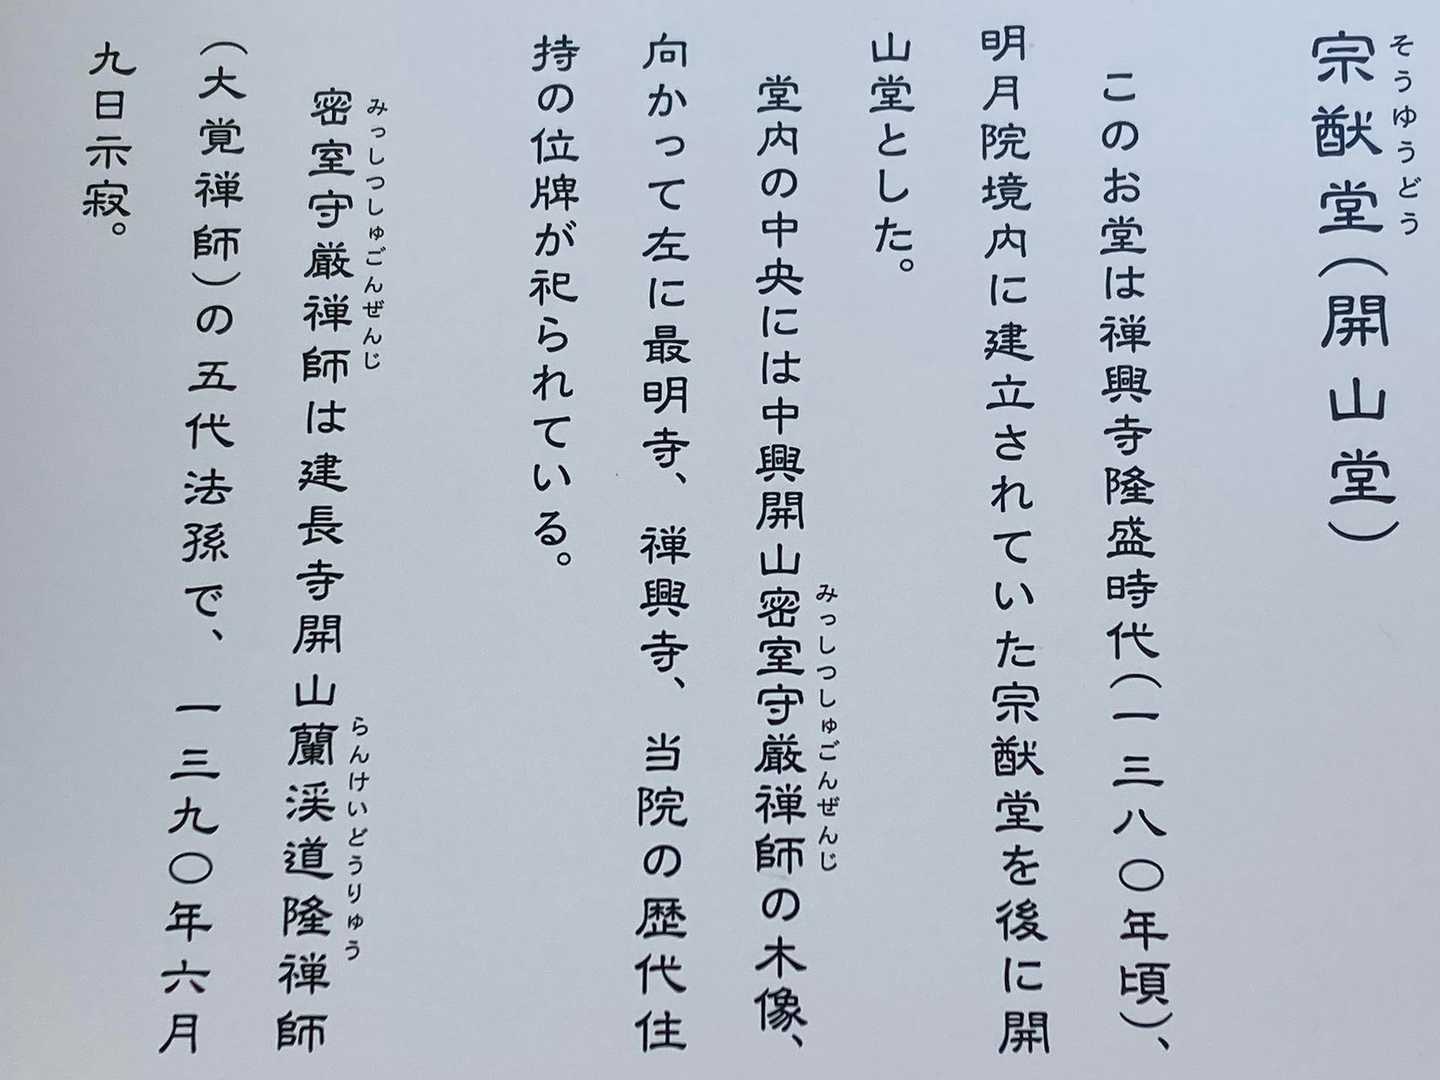 宗猷堂(開山堂)
そうゆうどう
このお堂は禅興寺隆盛時代(一三八〇年頃)、
明月院境内に建立されていた宗猷堂を後に開
山堂とした。
堂内の中央には中興開山密室守厳禅師の木像、
みっしつしゅごんぜんじ
向かって左に最明寺、禅興寺、当院の歴代住
持の位牌が祀られている。
密室守厳禅師は建長寺開山蘭渓道隆禅師
みっしつしゅごんぜんじ
らんけいどうりゅう
(大覚禅師)の五代法孫で、一三九〇年六月
九日示寂。